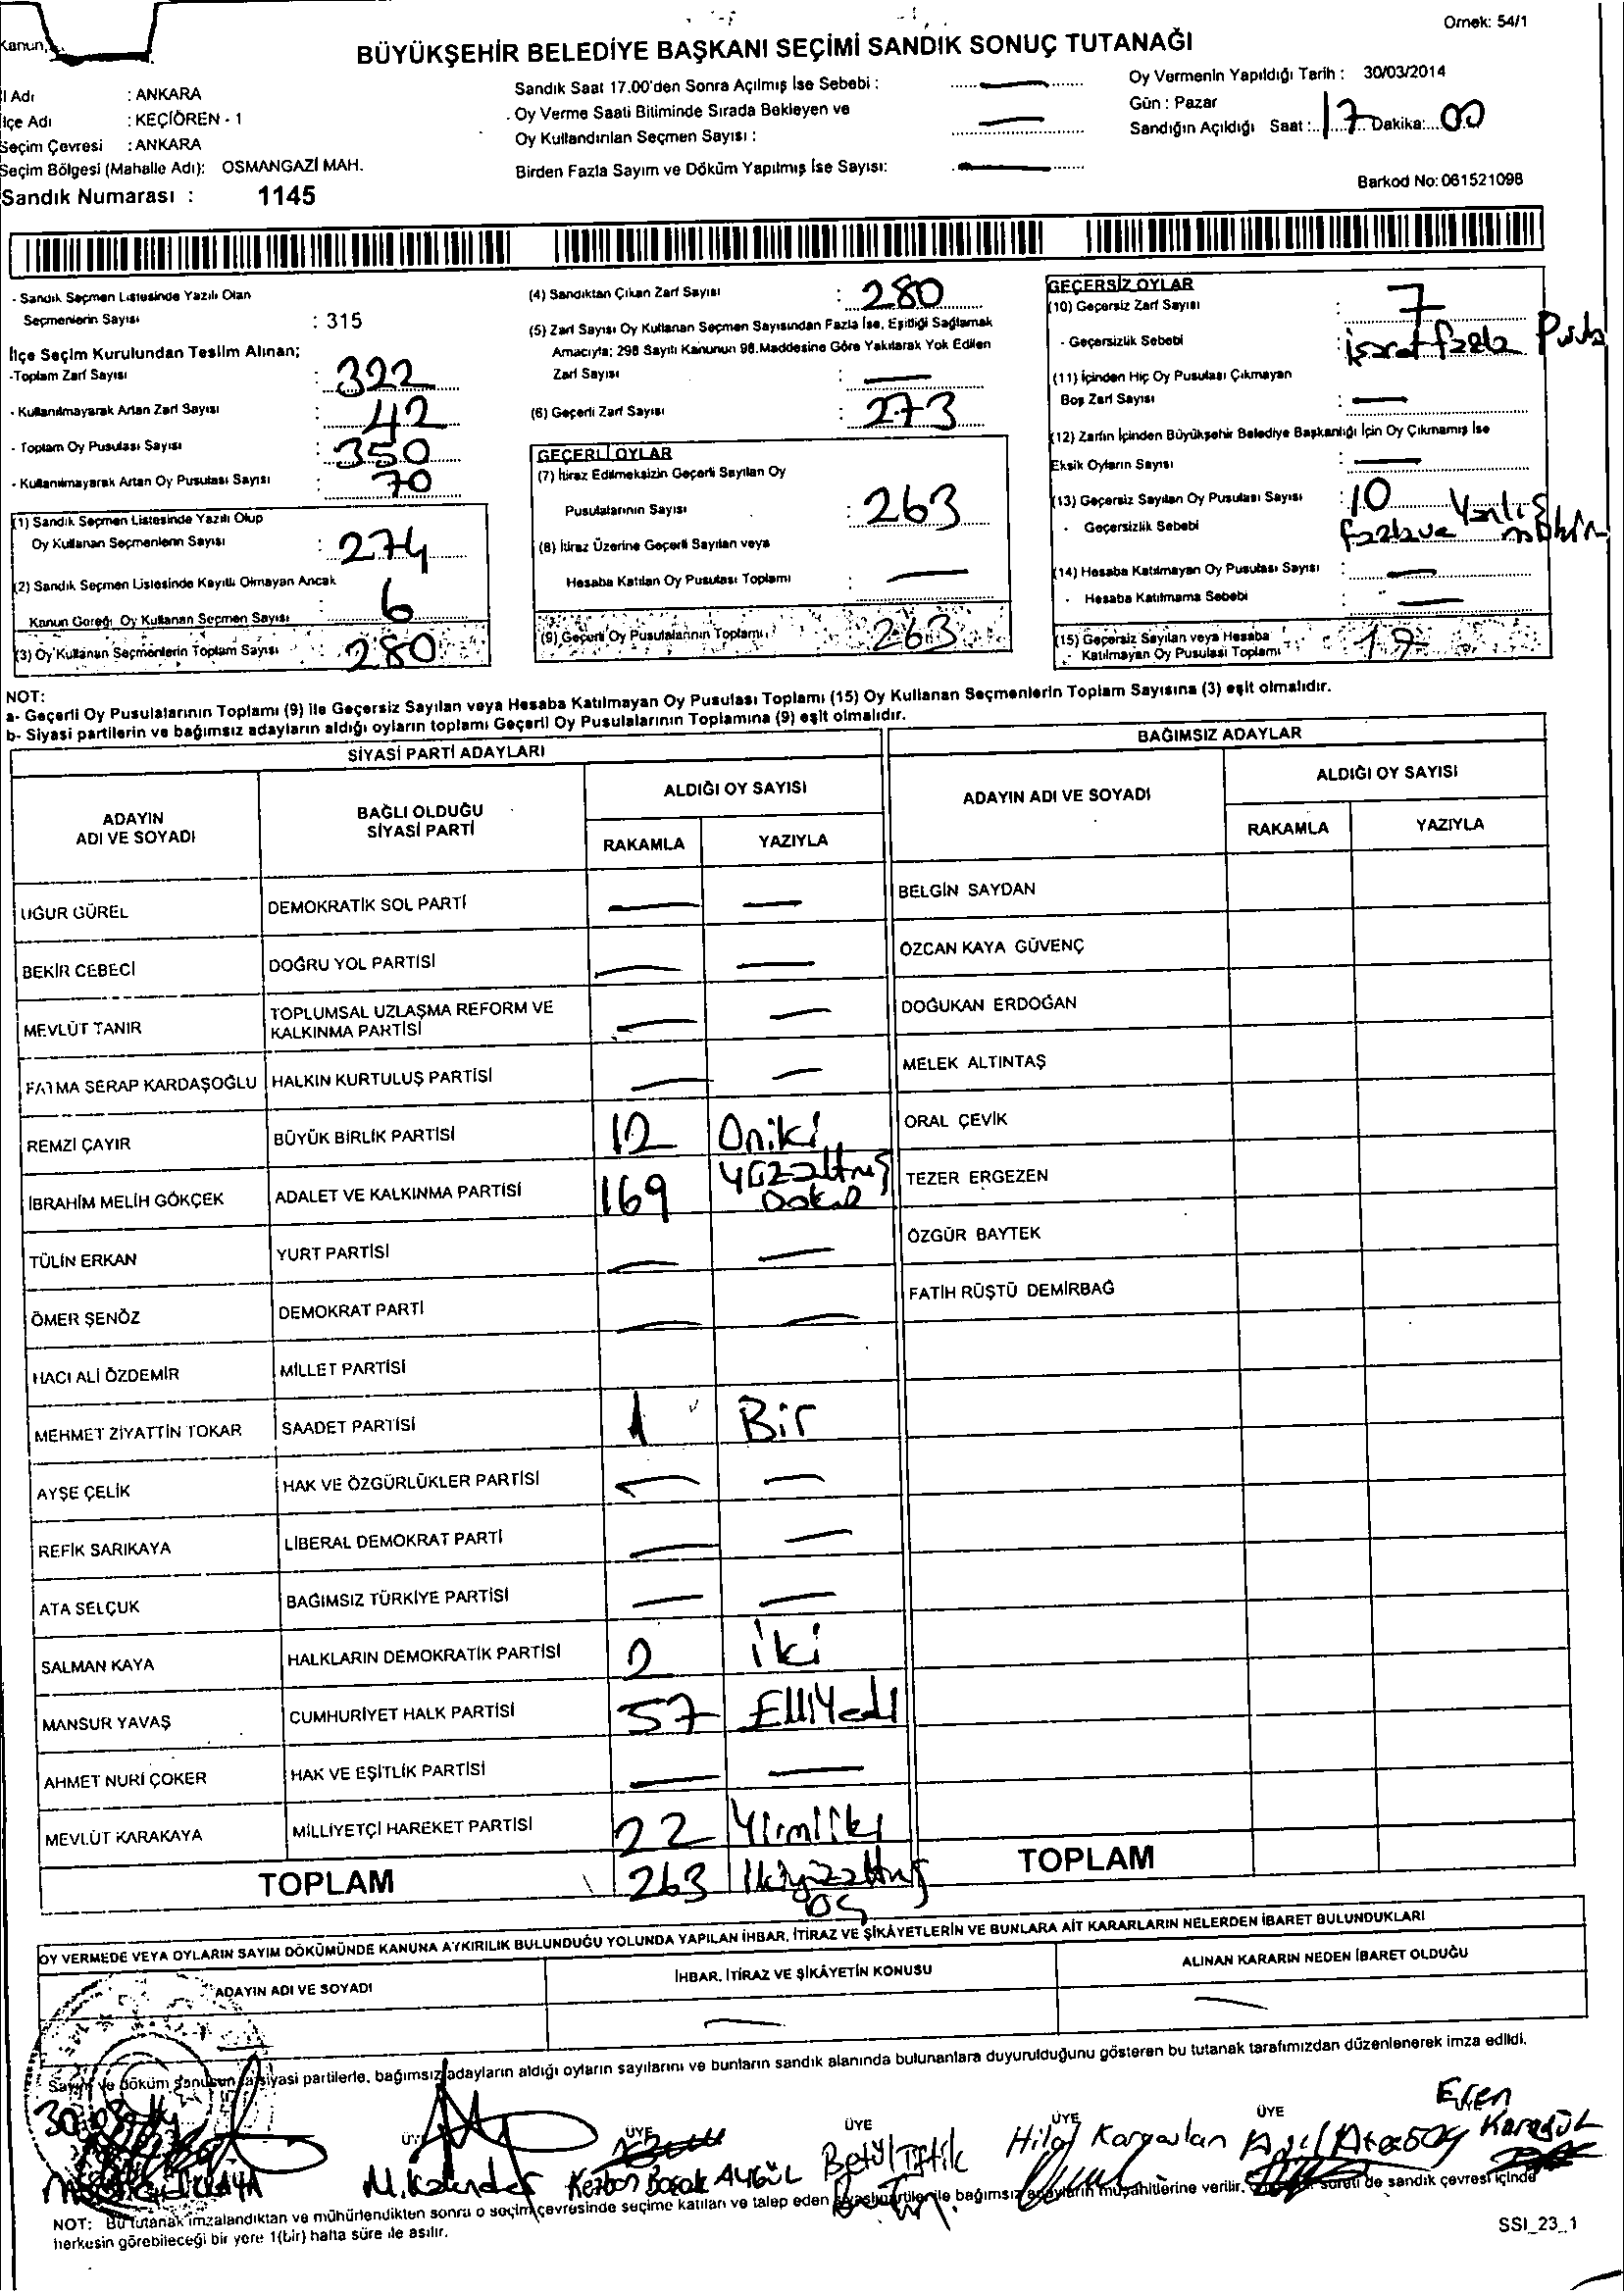 Örnek: 54/1
Kanun,
BÜYÜKŞEHİR BELEDİYE BAŞKANI SEÇİMİ SANDIK SONUÇ TUTANAĞI
İl Adı : ANKARA
İlçe Adı : KEÇİÖREN - 1
Seçim Çevresi : ANKARA
Seçim Bölgesi (Mahalle Adı): OSMANGAZİ MAH.
Sandık Numarası : 1145
Sandık Saat 17.00'den Sonra Açılmış İse Sebebi : —
Oy Verme Saati Bitiminde Sırada Bekleyen ve
Oy Kullandırılan Seçmen Sayısı : —
Birden Fazla Sayım ve Döküm Yapılmış İse Sayısı: —
Oy Vermenin Yapıldığı Tarih : 30/03/2014
Gün : Pazar
Sandığın Açıldığı Saat : 17 Dakika: 00
Barkod No: 061521098
- Sandık Seçmen Listesinde Yazılı Olan
Seçmenlerin Sayısı : 315
İlçe Seçim Kurulundan Teslim Alınan;
-Toplam Zarf Sayısı : 322
- Kullanılmayarak Artan Zarf Sayısı : 42
- Toplam Oy Pusulası Sayısı : 350
- Kullanılmayarak Artan Oy Pusulası Sayısı : 70
(1) Sandık Seçmen Listesinde Yazılı Olup
Oy Kullanan Seçmenlerin Sayısı : 274
(2) Sandık Seçmen Listesinde Kayıtlı Olmayan Ancak
Kanun Gereği Oy Kullanan Seçmen Sayısı : 6
(3) Oy Kullanan Seçmenlerin Toplam Sayısı : 280
(4) Sandıktan Çıkan Zarf Sayısı : 280
(5) Zarf Sayısı Oy Kullanan Seçmen Sayısından Fazla İse, Eşitliği Sağlamak
Amacıyla; 298 Sayılı Kanunun 98.Maddesine Göre Yakılarak Yok Edilen
Zarf Sayısı : —
(6) Geçerli Zarf Sayısı : 273
GEÇERLİ OYLAR
(7) İtiraz Edilmeksizin Geçerli Sayılan Oy
Pusulalarının Sayısı : 263
(8) İtiraz Üzerine Geçerli Sayılan veya
Hesaba Katılan Oy Pusulası Toplamı : —
(9) Geçerli Oy Pusulalarının Toplamı : 263
GEÇERSİZ OYLAR
(10) Geçersiz Zarf Sayısı : 7
- Geçersizlik Sebebi : işaret fazla Pusula
(11) İçinden Hiç Oy Pusulası Çıkmayan
Boş Zarf Sayısı : —
(12) Zarfın İçinden Büyükşehir Belediye Başkanlığı İçin Oy Çıkmamış İse
Eksik Oyların Sayısı : —
(13) Geçersiz Sayılan Oy Pusulası Sayısı : 10
- Geçersizlik Sebebi fazla ve Yanlış
(14) Hesaba Katılmayan Oy Pusulası Sayısı : —
- Hesaba Katılmama Sebebi : —
(15) Geçersiz Sayılan veya Hesaba
Katılmayan Oy Pusulası Toplamı :
NOT:
a- Geçerli Oy Pusulalarının Toplamı (9) ile Geçersiz Sayılan veya Hesaba Katılmayan Oy Pusulası Toplamı (15) Oy Kullanan Seçmenlerin Toplam Sayısına (3) eşit olmalıdır.
b- Siyasi partilerin ve bağımsız adayların aldığı oyların toplamı Geçerli Oy Pusulalarının Toplamına (9) eşit olmalıdır.
SİYASİ PARTİ ADAYLARI
ADAYIN ADI VE SOYADI BAĞLI OLDUĞU SİYASİ PARTİ ALDIĞI OY SAYISI
RAKAMLA YAZIYLA
UĞUR GÜREL DEMOKRATİK SOL PARTİ — —
BEKİR CEBECİ DOĞRU YOL PARTİSİ — —
MEVLÜT TANIR TOPLUMSAL UZLAŞMA REFORM VE KALKINMA PARTİSİ — —
FATMA SERAP KARDAŞOĞLU HALKIN KURTULUŞ PARTİSİ — —
REMZİ ÇAYIR BÜYÜK BİRLİK PARTİSİ 12 Oniki
İBRAHİM MELİH GÖKÇEK ADALET VE KALKINMA PARTİSİ 169 yüzaltmış Dokuz
TÜLİN ERKAN YURT PARTİSİ — —
ÖMER ŞENÖZ DEMOKRAT PARTİ — —
HACI ALİ ÖZDEMİR MİLLET PARTİSİ
MEHMET ZİYATTİN TOKAR SAADET PARTİSİ 1 Bir
AYŞE ÇELİK HAK VE ÖZGÜRLÜKLER PARTİSİ — —
REFİK SARIKAYA LİBERAL DEMOKRAT PARTİ — —
ATA SELÇUK BAĞIMSIZ TÜRKİYE PARTİSİ — —
SALMAN KAYA HALKLARIN DEMOKRATİK PARTİSİ 2 iki
MANSUR YAVAŞ CUMHURİYET HALK PARTİSİ 57 ElliYedi
AHMET NURİ ÇOKER HAK VE EŞİTLİK PARTİSİ — —
MEVLÜT KARAKAYA MİLLİYETÇİ HAREKET PARTİSİ 22 Yirmiiki
TOPLAM 263 ikiyüzaltmış üç
BAĞIMSIZ ADAYLAR
ADAYIN ADI VE SOYADI ALDIĞI OY SAYISI
RAKAMLA YAZIYLA
BELGİN SAYDAN
ÖZCAN KAYA GÜVENÇ
DOĞUKAN ERDOĞAN
MELEK ALTINTAŞ
ORAL ÇEVİK
TEZER ERGEZEN
ÖZGÜR BAYTEK
FATİH RÜŞTÜ DEMİRBAĞ
TOPLAM
OY VERMEDE VEYA OYLARIN SAYIM DÖKÜMÜNDE KANUNA AYKIRILIK BULUNDUĞU YOLUNDA YAPILAN İHBAR, İTİRAZ VE ŞİKÂYETLERİN VE BUNLARA AİT KARARLARIN NELERDEN İBARET BULUNDUKLARI
ADAYIN ADI VE SOYADI İHBAR, İTİRAZ VE ŞİKÂYETİN KONUSU ALINAN KARARIN NEDEN İBARET OLDUĞU
— —
Sayım ve döküm sonucun siyasi partilerle, bağımsız adayların aldığı oyların sayılarını ve bunların sandık alanında bulunanlara duyurulduğunu gösteren bu tutanak tarafımızdan düzenlenerek imza edildi.
ÜYE ÜYE ÜYE ÜYE ÜYE
M. Kalender Kezban Başak AYGÜL Betül Tiftik Hilal Eren Karagül
NOT: Bu tutanak imzalandıktan ve mühürlendikten sonra o seçim çevresinde seçime katılan ve talep eden siyasi partiler ile bağımsız adayların müşahitlerine verilir. sureti de sandık çevresi içinde
herkesin görebileceği bir yere 1(bir) hafta süre ile asılır.
SSI_23_1